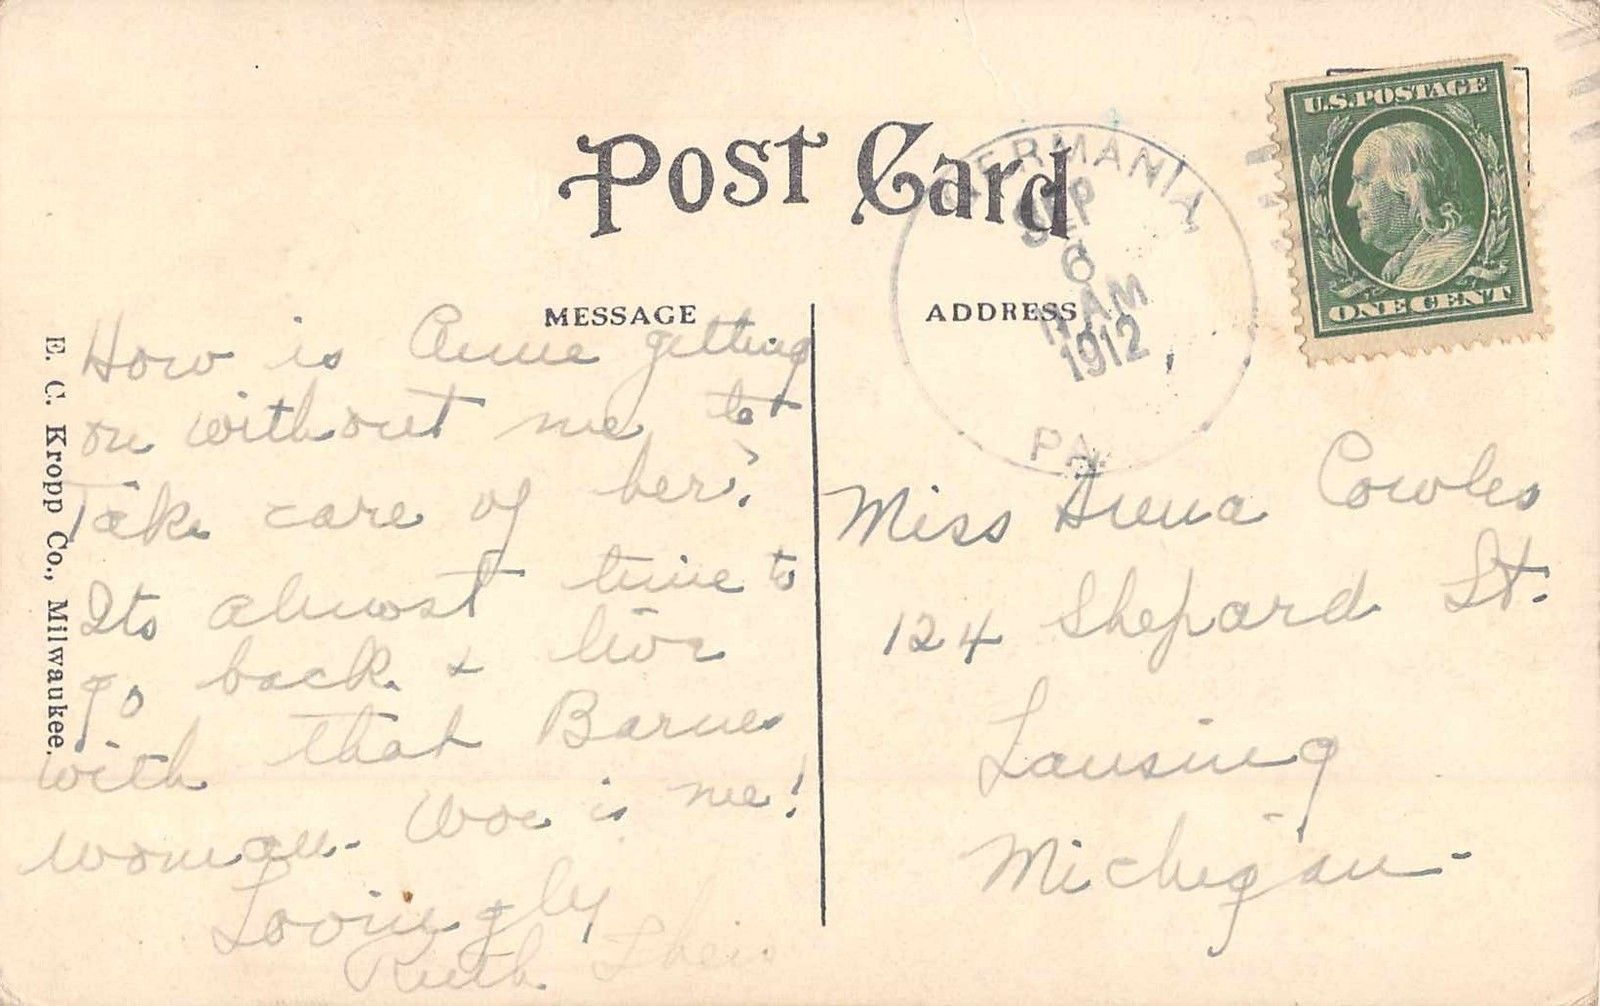 Post Card
MESSAGE
How is Anne getting
on without me to
Take care of her?
Its almost time to
go back & live
with that Barnes
woman. Woe is me!
Lovingly
Ruth
E. C. Kropp Co., Milwaukee.
ADDRESS
GERMANIA
SEP
6
AM
1912
PA.
U.S. POSTAGE
ONE CENT
Miss Cowles
124 Shepard St.
Lansing
Michigan-